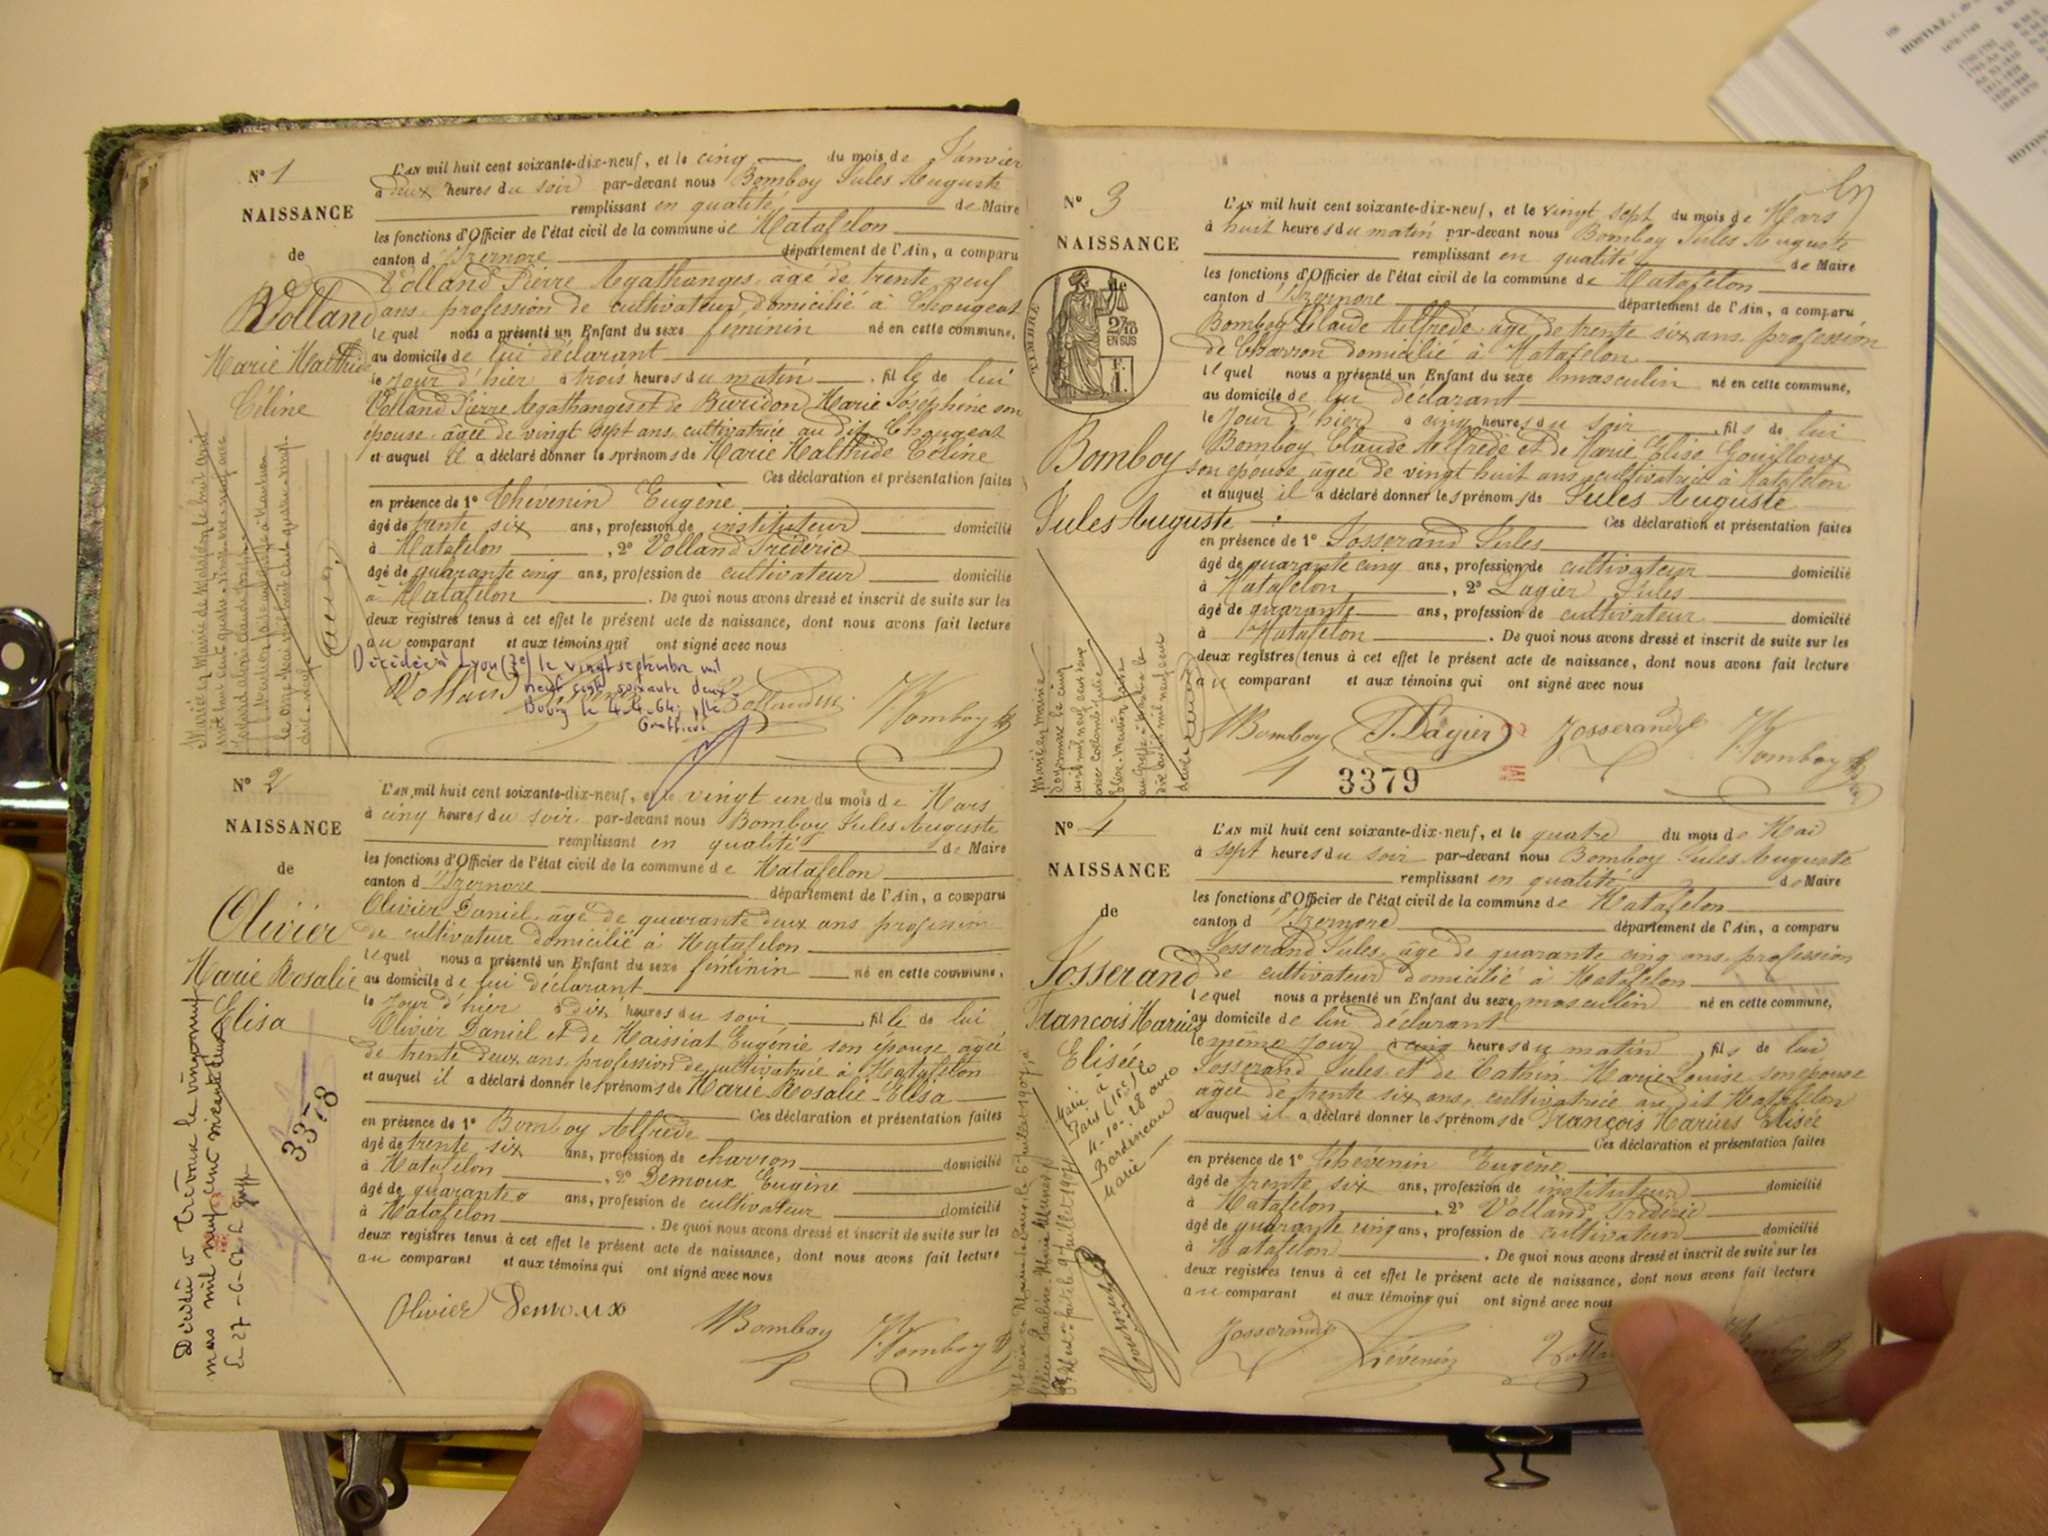 N° 1
NAISSANCE
de
Volland
Marie Malthide
Céline
L'AN mil huit cent soixante-dix-neuf, et le cinq du mois de Janvier
à deux heures du soir par-devant nous Bomboy Jules Auguste
remplissant en qualité de Maire
les fonctions d'Officier de l'état civil de la commune de Matafelon
canton d'Izernore département de l'Ain, a comparu
Volland Pierre Agathanges, âgé de trente neuf
ans, profession de cultivateur, domicilié à Chougeat
lequel nous a présenté un Enfant du sexe féminin né en cette commune,
au domicile de lui déclarant
le jour d'hier à trois heures du matin, fille de lui
Volland Pierre Agathanges et de Buridon Marie Joséphine son
épouse, âgée de vingt sept ans, cultivatrice au dit Chougeat
et auquel il a déclaré donner les prénoms de Marie Malthide Céline
Ces déclaration et présentation faites
en présence de 1° Thévenin Eugène
âgé de trente six ans, profession de instituteur domicilié
à Matafelon, 2° Volland Frédéric
âgé de quarante cinq ans, profession de cultivateur domicilié
à Matafelon. De quoi nous avons dressé et inscrit de suite sur les
deux registres tenus à cet effet le présent acte de naissance, dont nous avons fait lecture
au comparant et aux témoins qui ont signé avec nous
Décédée à Lyon (7e) le vingt septembre mil
neuf cent soixante deux.
le 4.4.64
Volland
Bomboy
N° 2
NAISSANCE
de
Olivier
Marie Rosalie
Elisa
L'AN mil huit cent soixante-dix-neuf, et le vingt un du mois de Mars
à cinq heures du soir par-devant nous Bomboy Jules Auguste
remplissant en qualité de Maire
les fonctions d'Officier de l'état civil de la commune de Matafelon
canton d'Izernore département de l'Ain, a comparu
Olivier Daniel, âgé de quarante deux ans profession
de cultivateur domicilié à Matafelon
lequel nous a présenté un Enfant du sexe féminin né en cette commune,
au domicile de lui déclarant
le jour d'hier à dix heures du soir, fille de lui
Olivier Daniel et de Maissiat Eugénie son épouse, âgée
de trente deux ans, profession de cultivatrice à Matafelon
et auquel il a déclaré donner les prénoms de Marie Rosalie Elisa
Ces déclaration et présentation faites
en présence de 1° Bomboy Alfrède
âgé de trente six ans, profession de charron domicilié
à Matafelon, 2° Demoux Eugène
âgé de quarante ans, profession de cultivateur domicilié
à Matafelon. De quoi nous avons dressé et inscrit de suite sur les
deux registres tenus à cet effet le présent acte de naissance, dont nous avons fait lecture
au comparant et aux témoins qui ont signé avec nous
Olivier Demoux
Bomboy
Bomboy
3378
Décédée à Trévoux le vingt neuf
mars mil neuf cent
Le 27-6-
N° 3
NAISSANCE
de
TIMBRE
2/10
EN SUS
1 f.
Bomboy
Jules Auguste
L'AN mil huit cent soixante-dix-neuf, et le vingt sept du mois de Mars
à huit heures du matin par-devant nous Bomboy Jules Auguste
remplissant en qualité de Maire
les fonctions d'Officier de l'état civil de la commune de Matafelon
canton d'Izernore département de l'Ain, a comparu
Bomboy Claude Alfrède, âgé de trente six ans, profession
de Charron domicilié à Matafelon
lequel nous a présenté un Enfant du sexe masculin né en cette commune,
au domicile de lui déclarant
le jour d'hier à cinq heures du soir, fils de lui
Bomboy Claude Alfrède et de Marie Elise Gouilloux
son épouse, âgée de vingt huit ans, cultivatrice à Matafelon
et auquel il a déclaré donner les prénoms de Jules Auguste
Ces déclaration et présentation faites
en présence de 1° Josserand Jules
âgé de quarante cinq ans, profession de cultivateur domicilié
à Matafelon, 2° Lagier Jules
âgé de quarante ans, profession de cultivateur domicilié
à Matafelon. De quoi nous avons dressé et inscrit de suite sur les
deux registres tenus à cet effet le présent acte de naissance, dont nous avons fait lecture
au comparant et aux témoins qui ont signé avec nous
Bomboy J. Lagier Josserand J Bomboy
3379
N° 4
NAISSANCE
de
Josserand
Francois Marius
Elisée
L'AN mil huit cent soixante-dix-neuf, et le quatre du mois de Mai
à sept heures du soir par-devant nous Bomboy Jules Auguste
remplissant en qualité de Maire
les fonctions d'Officier de l'état civil de la commune de Matafelon
canton d'Izernore département de l'Ain, a comparu
Josserand Jules, âgé de quarante cinq ans, profession
de cultivateur domicilié à Matafelon
lequel nous a présenté un Enfant du sexe masculin né en cette commune,
au domicile de lui déclarant
le même jour à cinq heures du matin, fils de lui
Josserand Jules et de Cathin Marie Louise son épouse
âgée de trente six ans, cultivatrice au dit Matafelon
et auquel il a déclaré donner les prénoms de François Marius Elisée
Ces déclaration et présentation faites
en présence de 1° Thévenin Eugène
âgé de trente six ans, profession de instituteur domicilié
à Matafelon, 2° Volland Frédéric
âgé de quarante cinq ans, profession de cultivateur domicilié
à Matafelon. De quoi nous avons dressé et inscrit de suite sur les
deux registres tenus à cet effet le présent acte de naissance, dont nous avons fait lecture
au comparant et aux témoins qui ont signé avec nous
Josserand J Thévenin
Marié à
Paris (15e) le
4-10-28 avec
Bardineau
Marie
HOSTIAZ